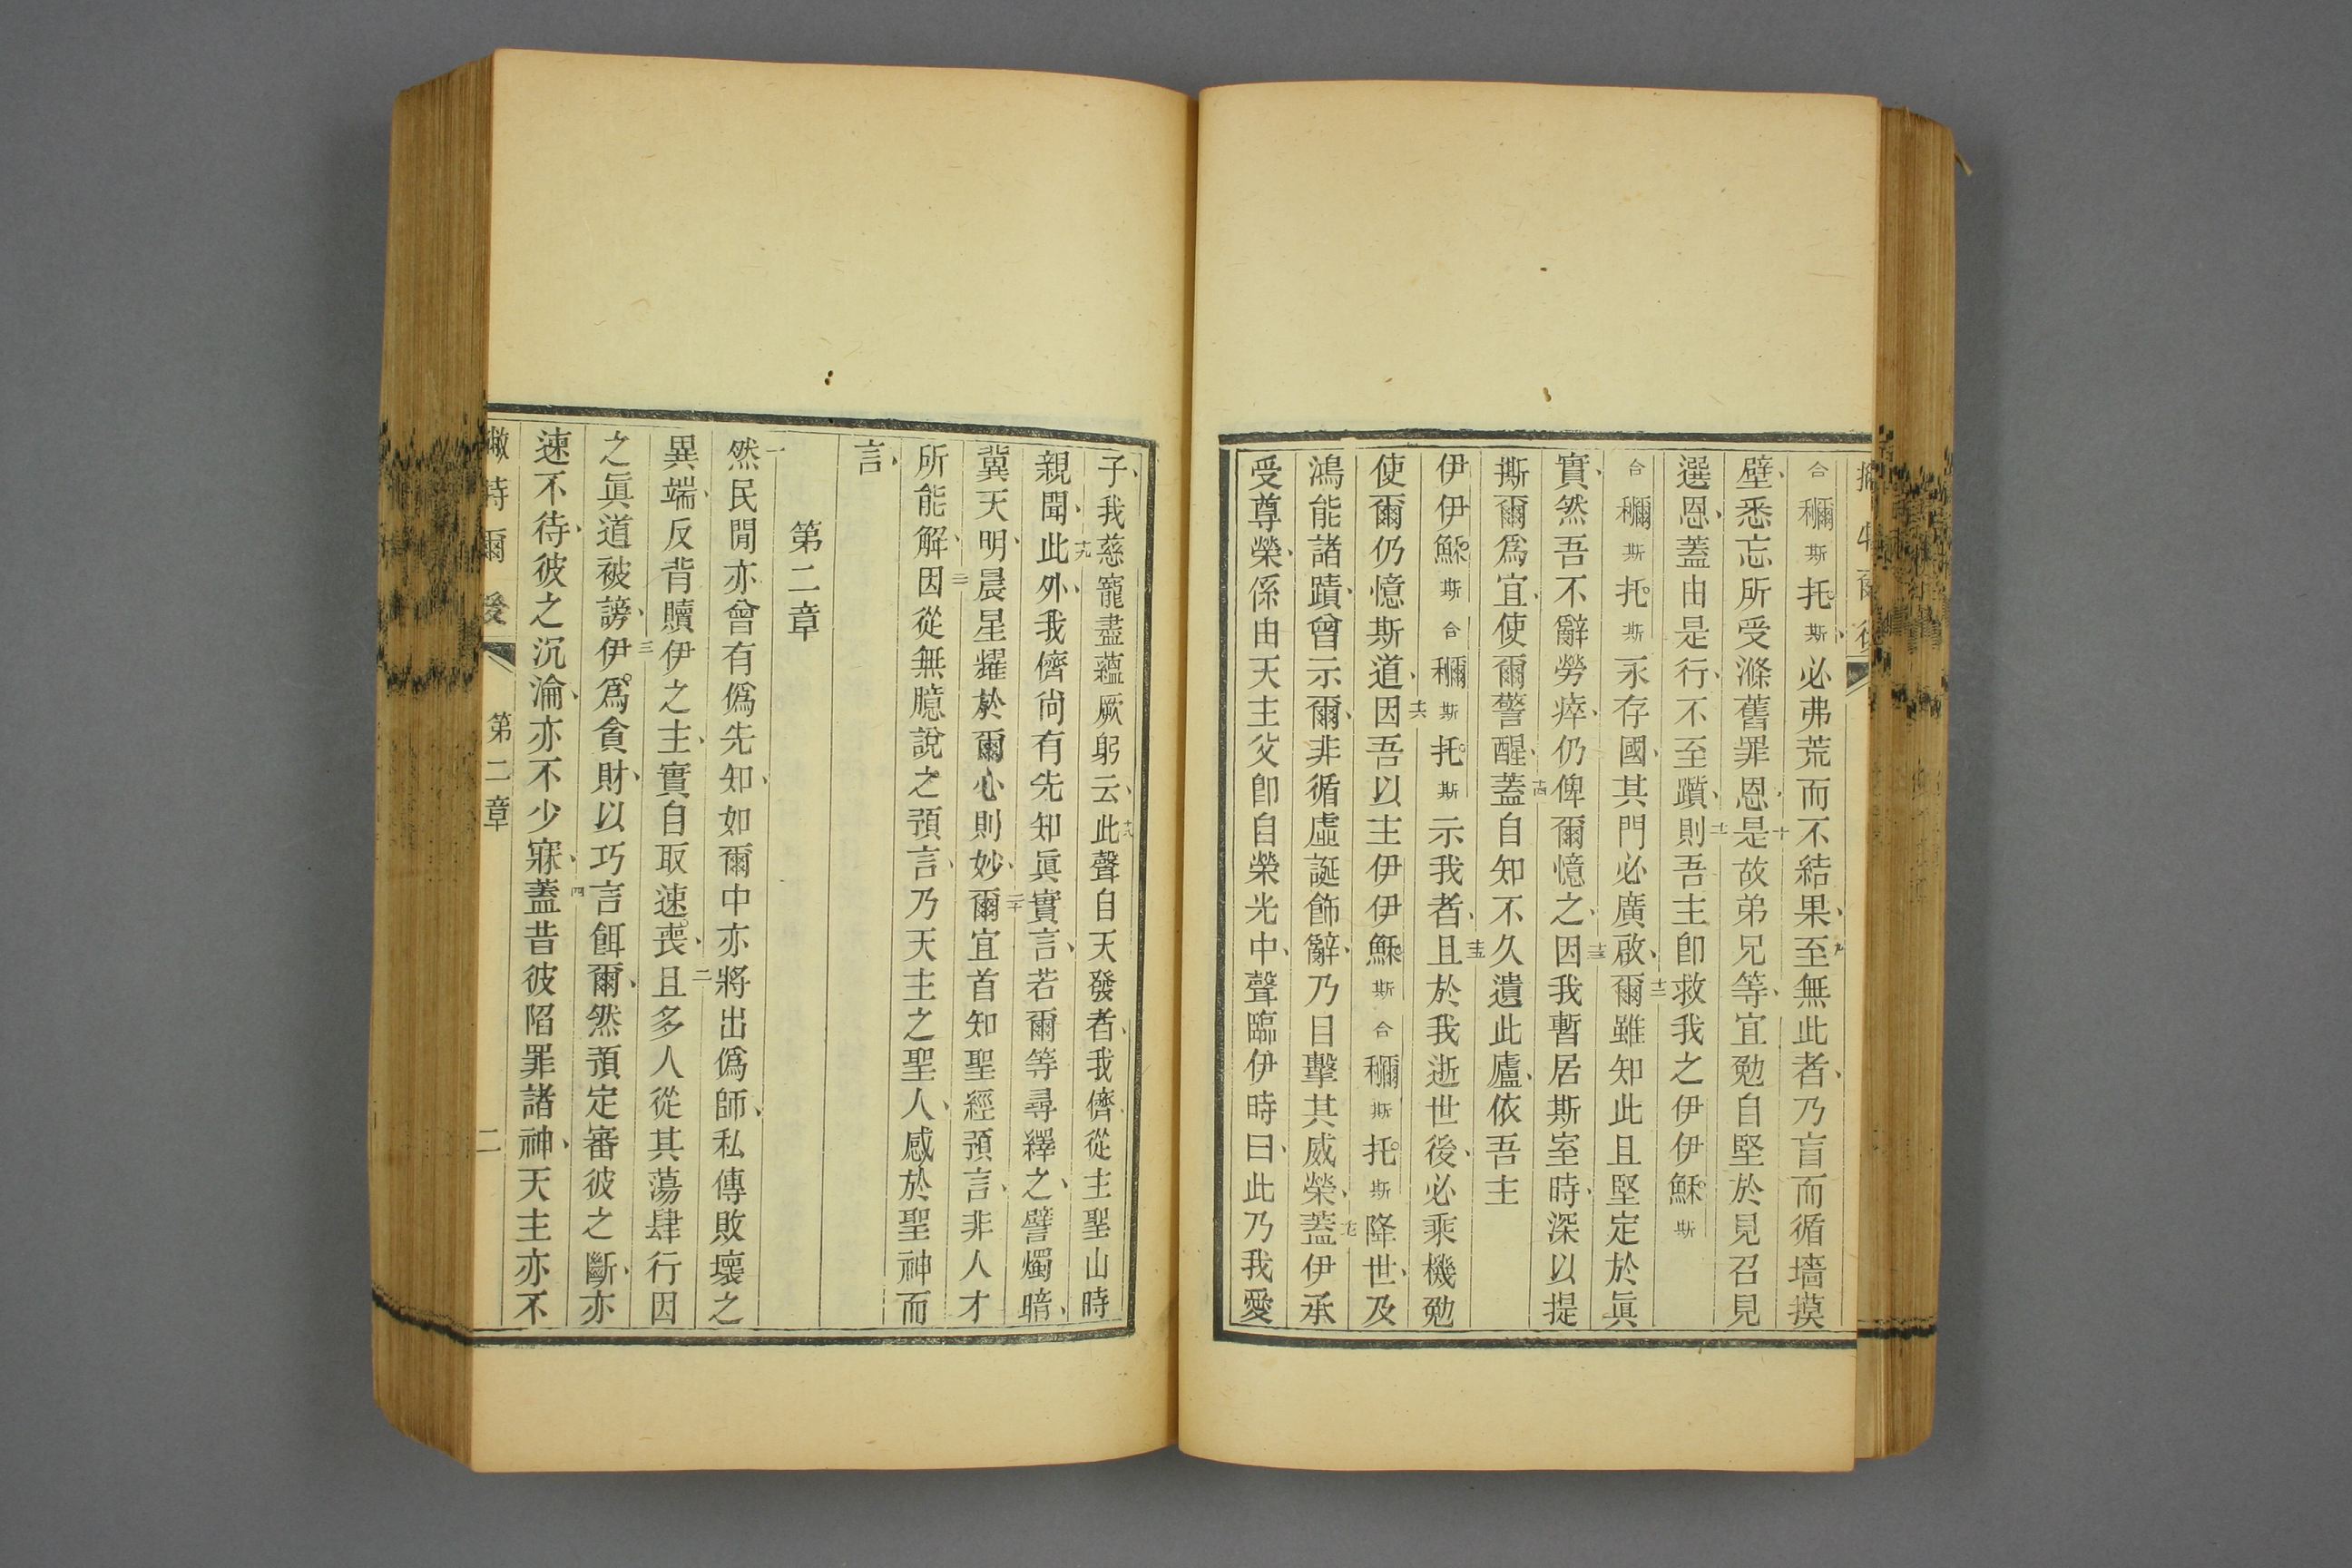 合穪斯托斯、必弗荒而不結果、九至無此者、乃盲而循墻摸
壁、悉忘所受滌舊罪恩、十是故弟兄等、宜勉自堅於見召見
選恩、蓋由是行、不至躓、十一則吾主卽救我之伊伊穌斯
合穪斯托斯永存國、其門必廣啟、十二爾雖知此且堅定於眞
實、然吾不辭勞瘁、仍俾爾憶之、十三因我暫居斯室時、深以提
撕爾爲宜、使爾警醒、十四蓋自知不久遺此廬、依吾主
伊伊穌斯合穪斯托斯示我者、十五且於我逝世後、必乘機勉
使爾仍憶斯道、十六因吾以主伊伊穌斯合穪斯托斯降世、及
鴻能諸蹟、曾示爾、非循虛誕飾辭、乃目擊其威榮、十七蓋伊承
受尊榮、係由天主父卽自榮光中、聲臨伊時曰、此乃我愛
子、我慈寵盡蘊厥躬云、十八此聲自天發者、我儕從主聖山時
親聞、十九此外、我儕尙有先知眞實言、若爾等尋繹之、譬燭暗、
冀天明、晨星耀於爾心則妙、二十爾宜首知聖經預言、非人才
所能解、二一因從無臆說之預言、乃天主之聖人、感於聖神而
言、
第二章
一然民間亦曾有僞先知、如爾中亦將出僞師、私傳敗壞之
異端、反背贖伊之主、實自取速喪、二且多人從其蕩肆行因
之眞道被謗、三伊爲貪財、以巧言餌爾、然預定審彼之斷、亦
速不待、彼之沉淪、亦不少寐、四蓋昔彼陷罪諸神、天主亦不
第二章
二